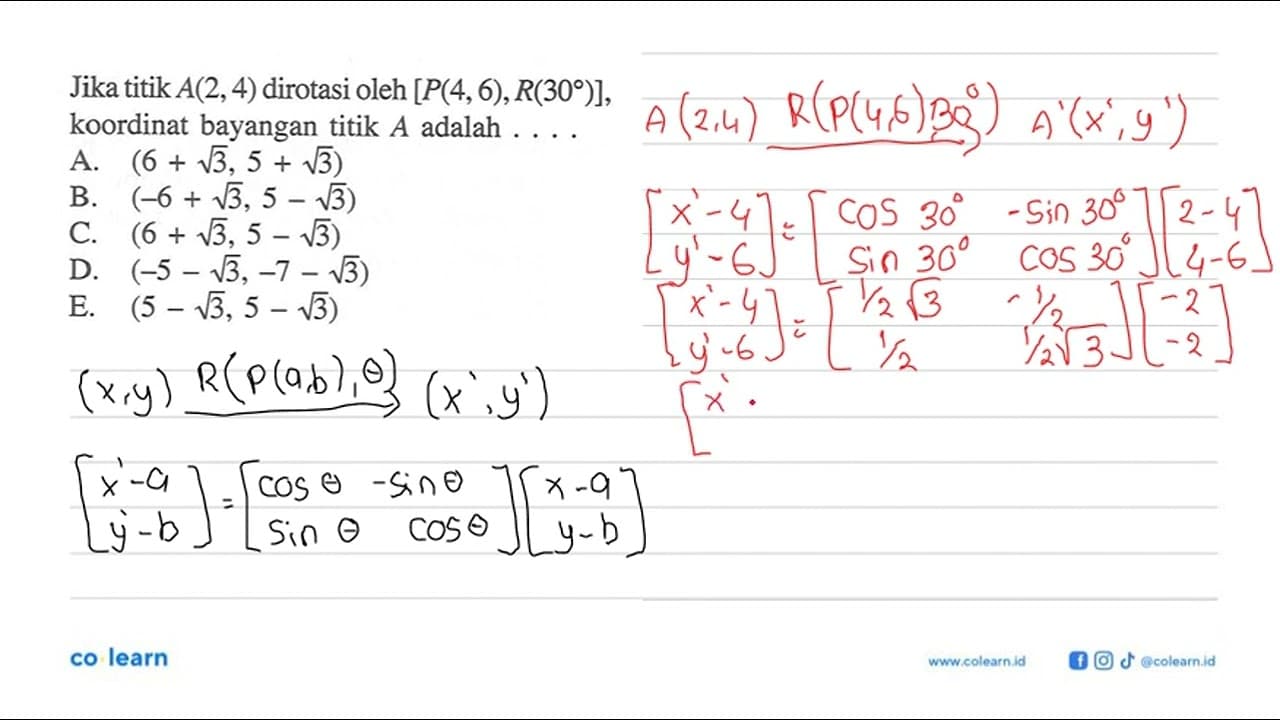 Jika titik A(2, 4) dirotasi oleh [P(4, 6), R(30°)],
koordinat bayangan titik A adalah . . . .
A. (6 + √3, 5 + √3)
B. (–6 + √3, 5 – √3)
C. (6 + √3, 5 – √3)
D. (–5 – √3, –7 – √3)
E. (5 – √3, 5 – √3)
(x,y) R(P(a,b),θ) (x',y')
[x'-a] = [cos θ -sin θ] [x-a]
[y'-b] [sin θ cos θ] [y-b]
A(2,4) R(P(4,6)30°) A'(x',y')
[x'-4] = [cos 30° -sin 30°] [2-4]
[y'-6] [sin 30° cos 30°] [4-6]
[x'-4] = [1/2 √3 -1/2] [-2]
[y'-6] [1/2 1/2√3] [-2]
[x'
co learn
www.colearn.id
@colearn.id